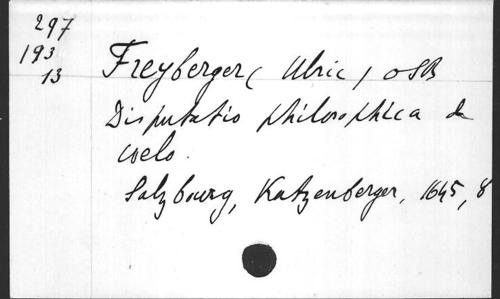 297
193
13
Freyberger ( Ulric ) OSB
Disputatio philosophica de
coelo.
Salzbourg, Katzenberger, 1645, 8